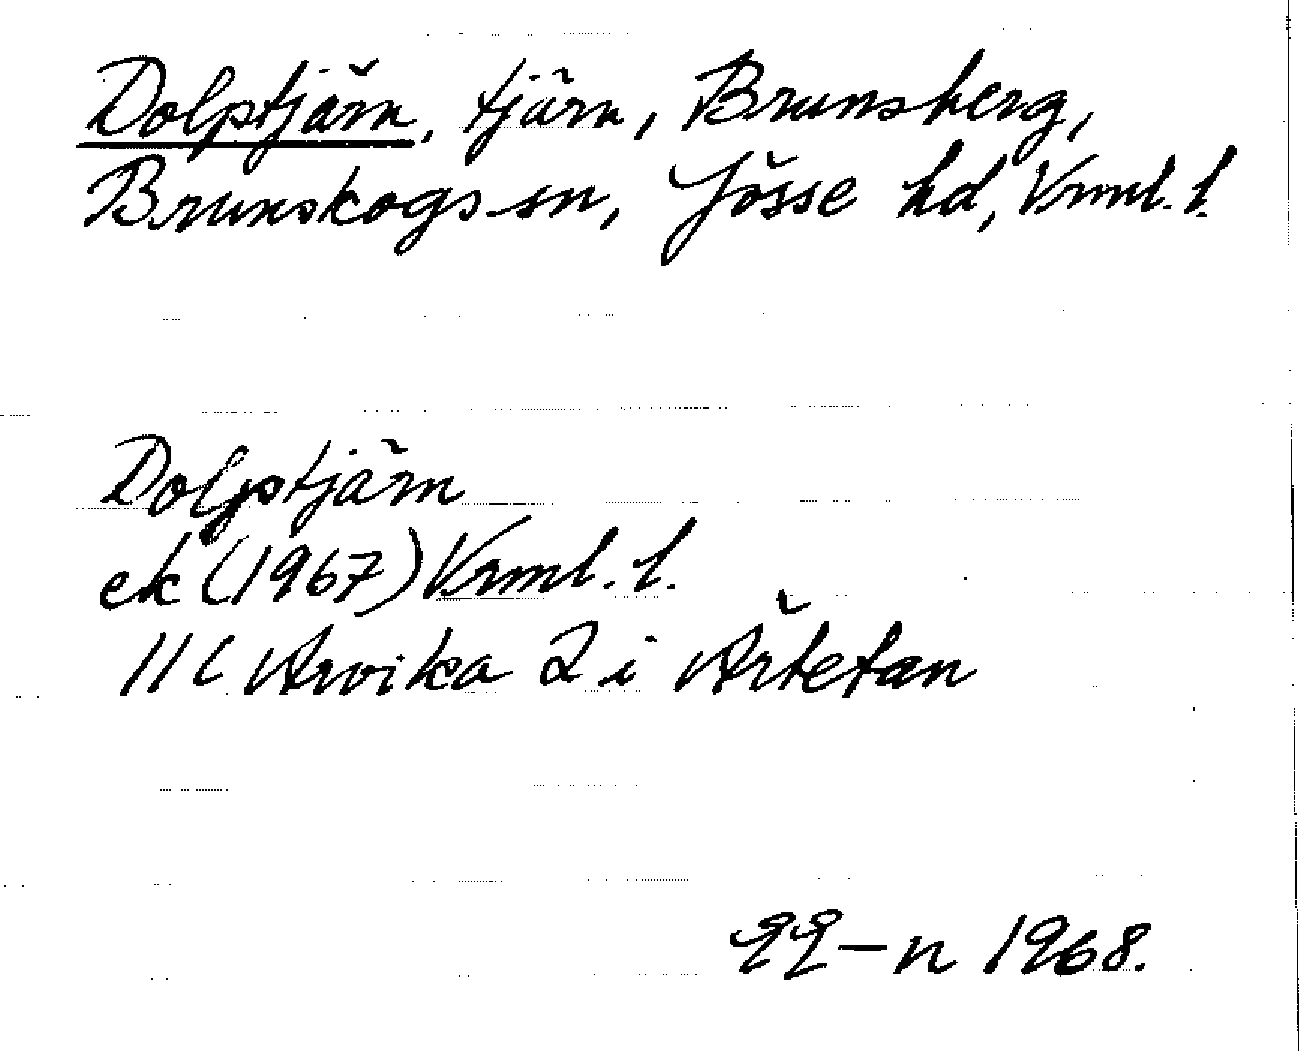 Dolptjärn, tjärn, Brunsberg,
Brunskogs sn, Jösse hd, Vrml. l.
Dolptjärn
ek (1967) Vrml. l.
11C Arvika 2 i Årtetan
EE-n 1968.